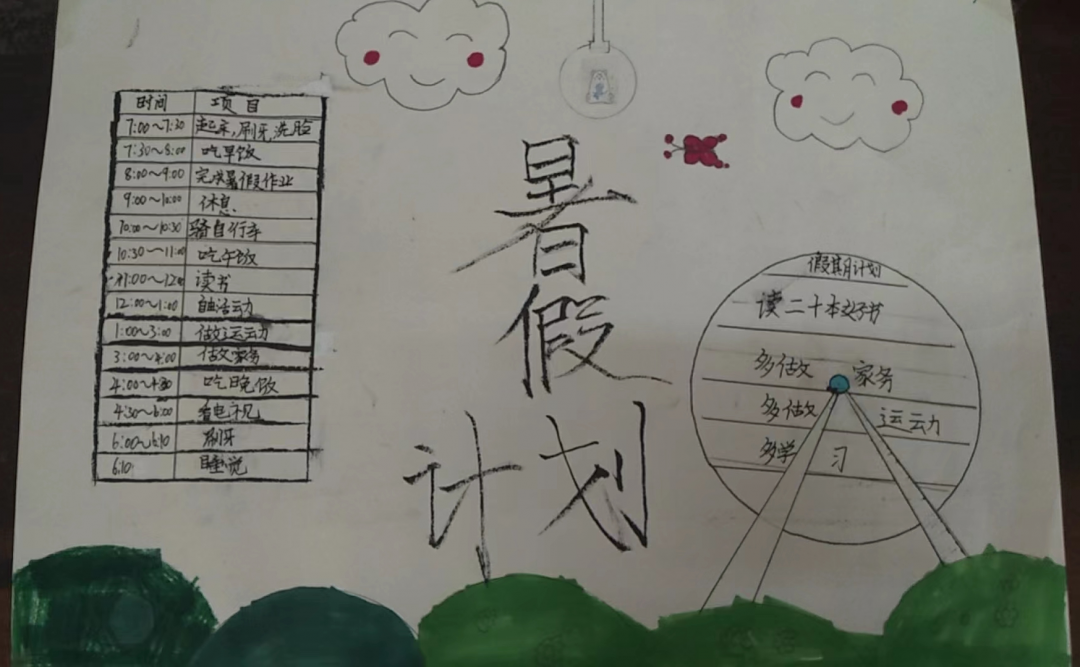 时间 项目
7:00～7:30 起床,刷牙,洗脸
7:30～8:00 吃早饭
8:00～9:00 完成暑假作业
9:00～10:00 休息
10:00～10:30 骑自行车
10:30～11:00 吃午饭
11:00～12:00 读书
12:00～1:00 自由活动
1:00～3:00 做运动
3:00～4:00 做家务
4:00～4:30 吃晚饭
4:30～6:00 看电视
6:00～6:10 刷牙
6:10 睡觉
暑假
计划
假期计划
读二十本好书
多做家务
多做运动
多学习